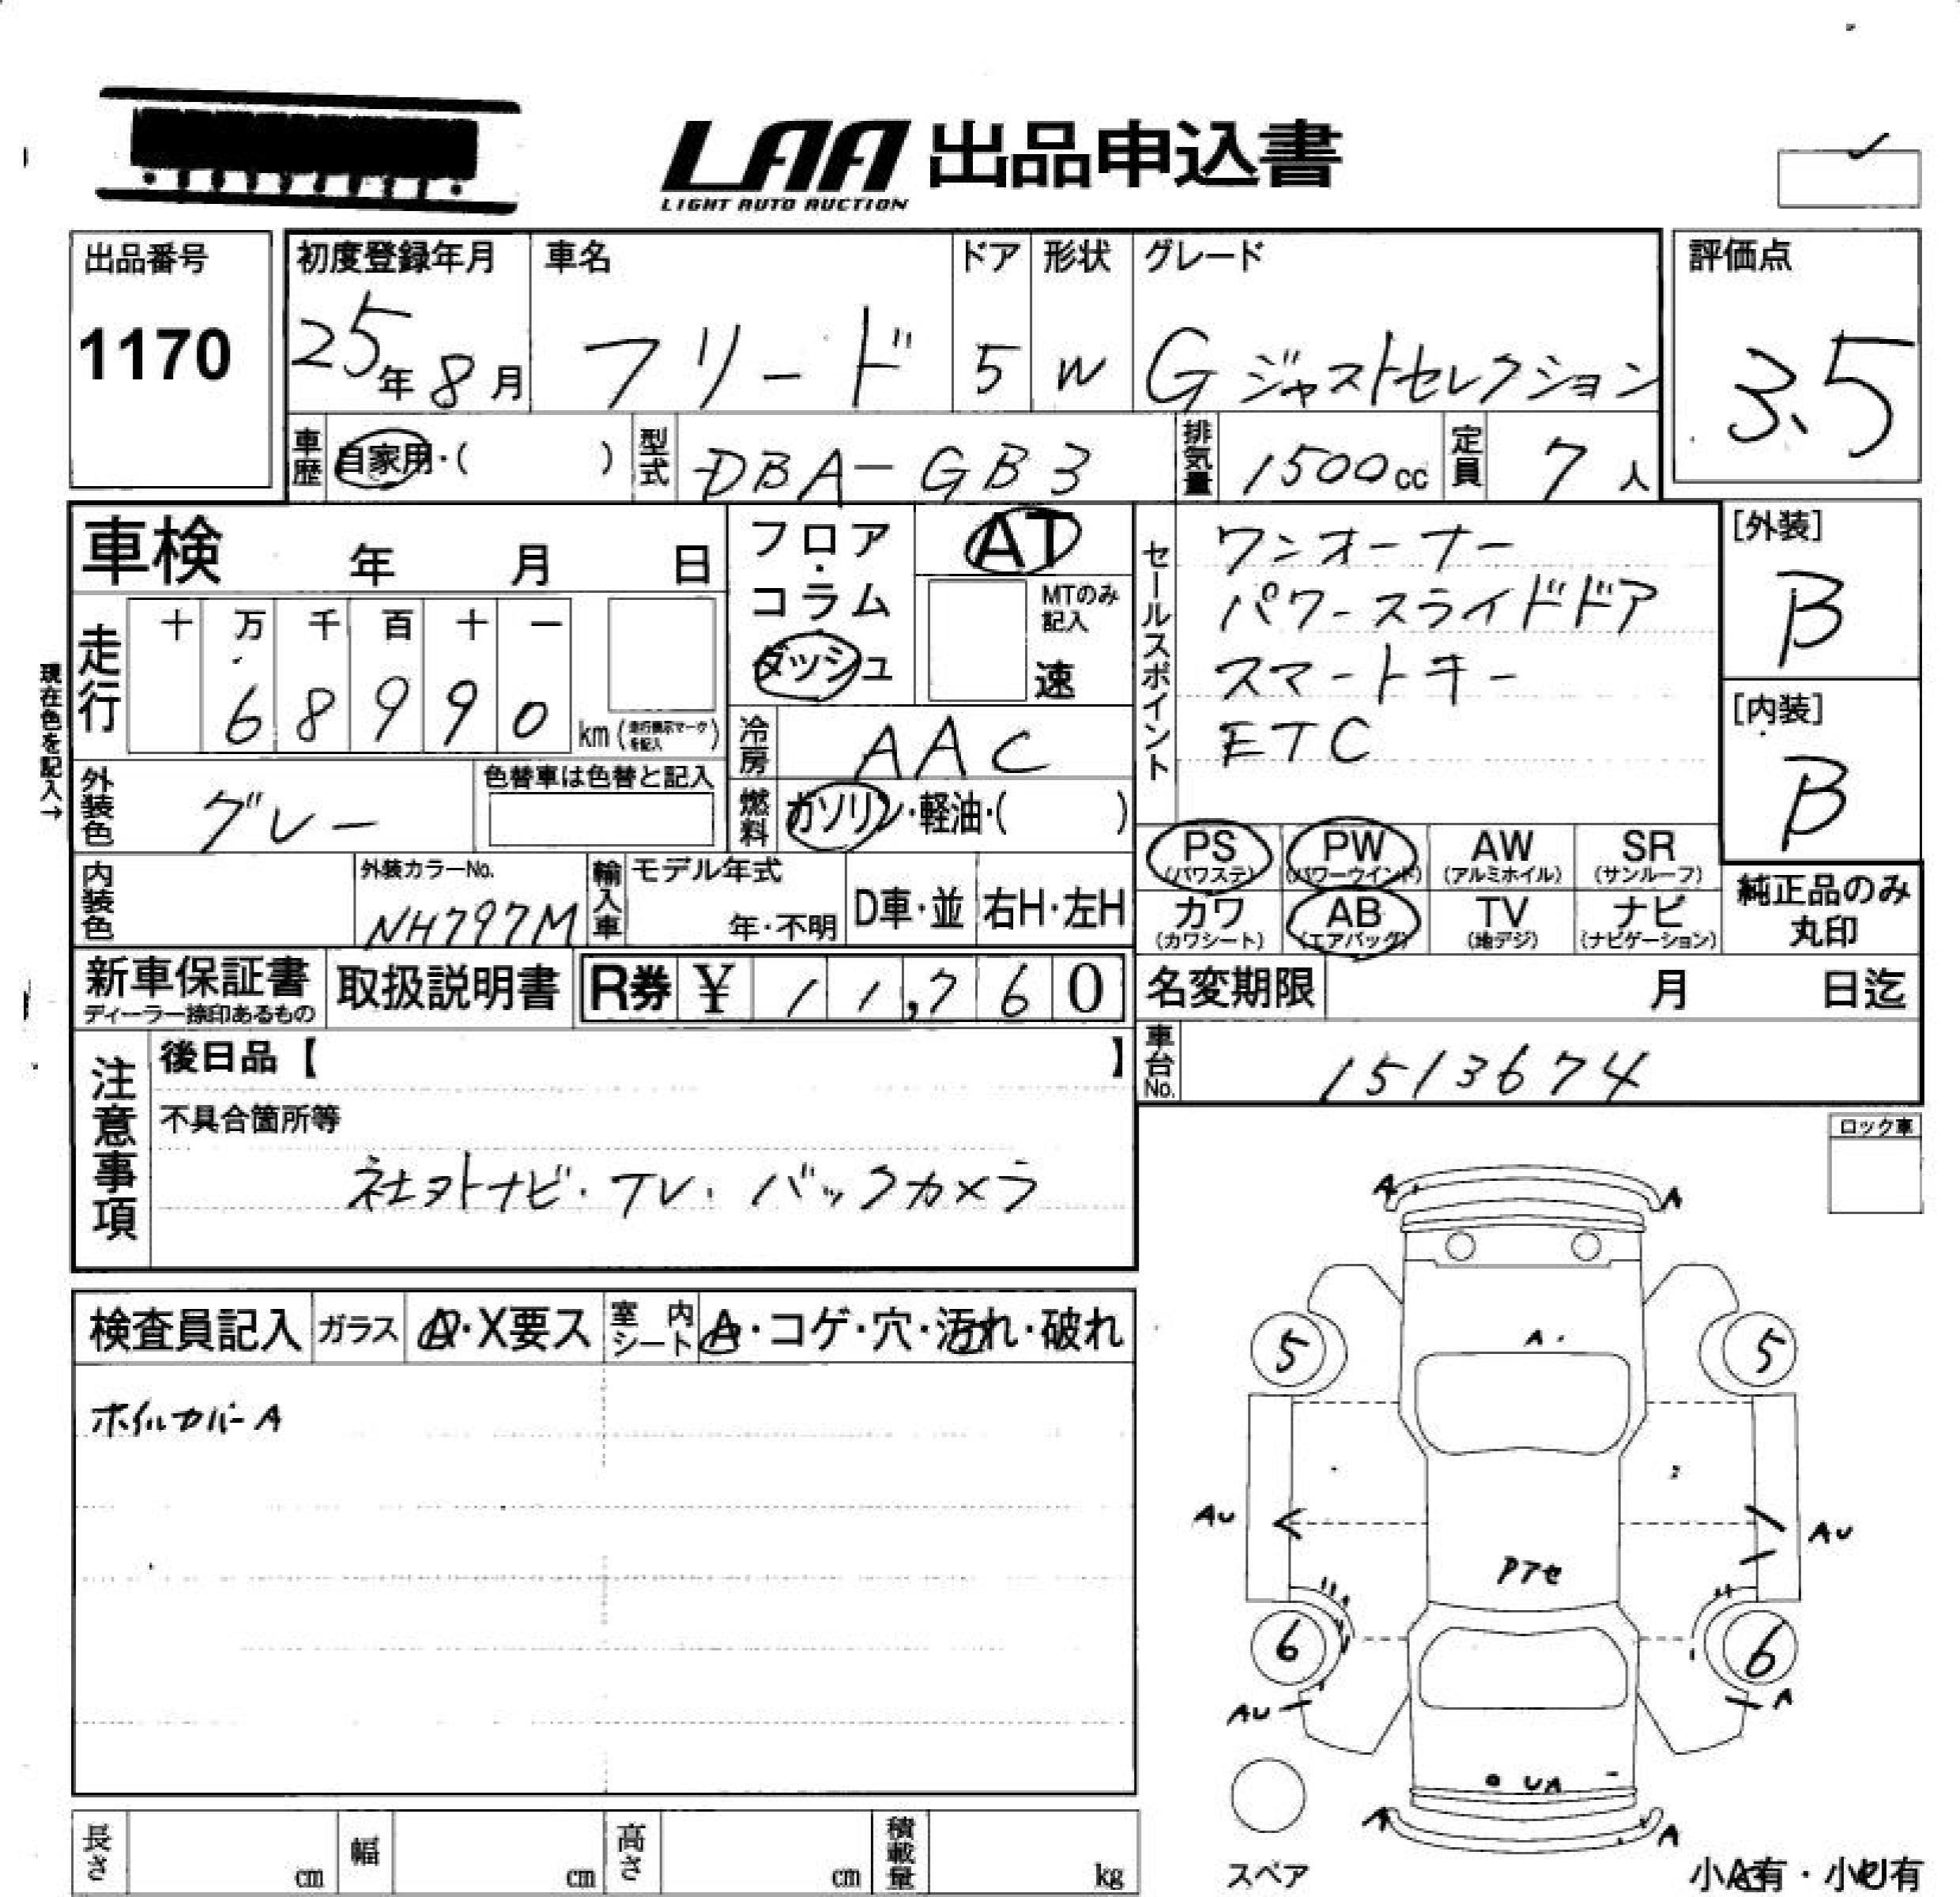 LAA 出品申込書
LIGHT AUTO AUCTION
出品番号
1170
初度登録年月
25年8月
車名
フリード
ドア
5
形状
W
グレード
G ジャストセレクション
評価点
3.5
車歴 自家用・( )
型式 DBA-GB3
排気量 1500cc
定員 7人
車検 年 月 日
フロア・コラム・ダッシュ
AT
MTのみ記入
速
現在色を記入→
走行
十 万 千 百 十 一
6 8 9 9 0 km
冷房 AAC
セールスポイント
ワンオーナー
パワースライドドア
スマートキー
ETC
[外装]
B
[内装]
B
外装色 グレー
色替車は色替と記入
燃料 ガソリン・軽油・( )
内装色
外装カラーNo.
NH797M
輸入車
モデル年式
年・不明
D車・並
右H・左H
PS (パワステ)
PW (パワーウインド)
AW (アルミホイル)
SR (サンルーフ)
カワ (カワシート)
AB (エアバッグ)
TV (地デジ)
ナビ (ナビゲーション)
純正品のみ
丸印
新車保証書
ディーラー捺印あるもの
取扱説明書
R券 ¥ 11,760
名変期限 月 日迄
注意事項
後日品【 】
不具合箇所等
社外ナビ・TV・バックカメラ
車台No. 1513674
ロック車
検査員記入
ガラス A・X要ス
室内シート A・コゲ・穴・汚れ・破れ
ホイルカバーA
A A
A
5 5
AU AU
Pアセ
6 6
AU A
UA
A A
スペア
小A有・小U有
長さ cm
幅 cm
高さ cm
積載量 kg